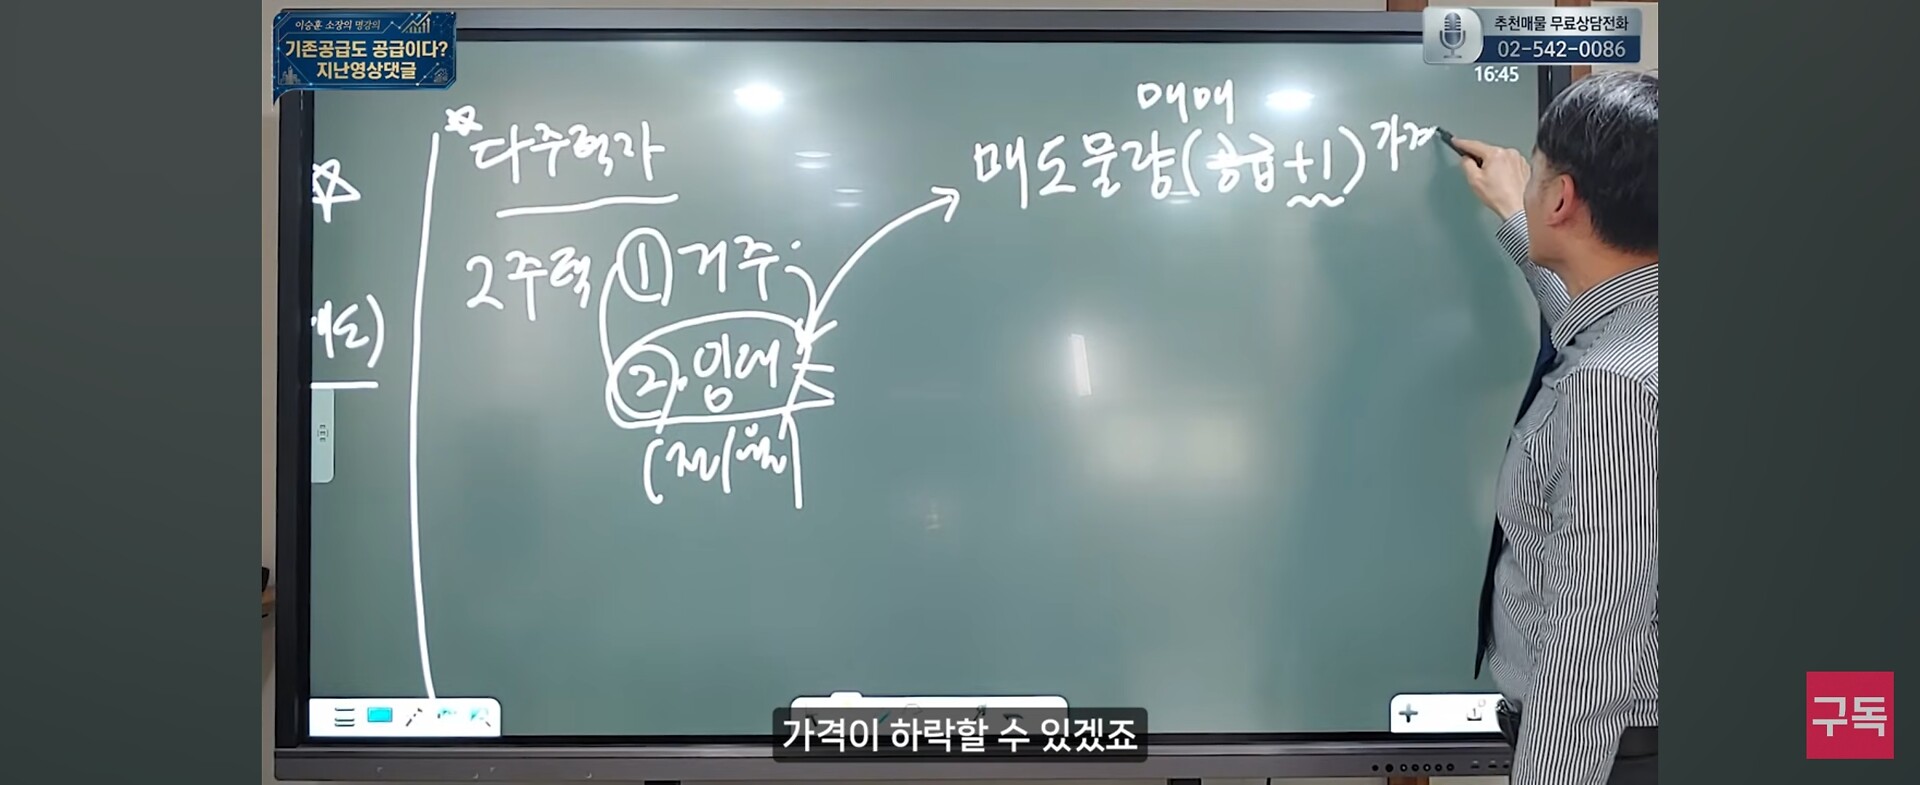 이승훈 소장의 명강의
기존공급도 공급이다?
지난영상댓글
추천매물 무료상담전화
02-542-0086
16:45
다주택자
2주택 ① 거주
② 임대
(전/월)
매매
매도물량(공급+1) 가격
가격이 하락할 수 있겠죠
구독